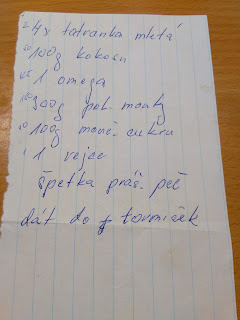 4x tatranka mletá
100g kokosu
1 omega
300g pol. mouky
100g mouč. cukru
1 vejce
špetka práš. peč
dát do formiček